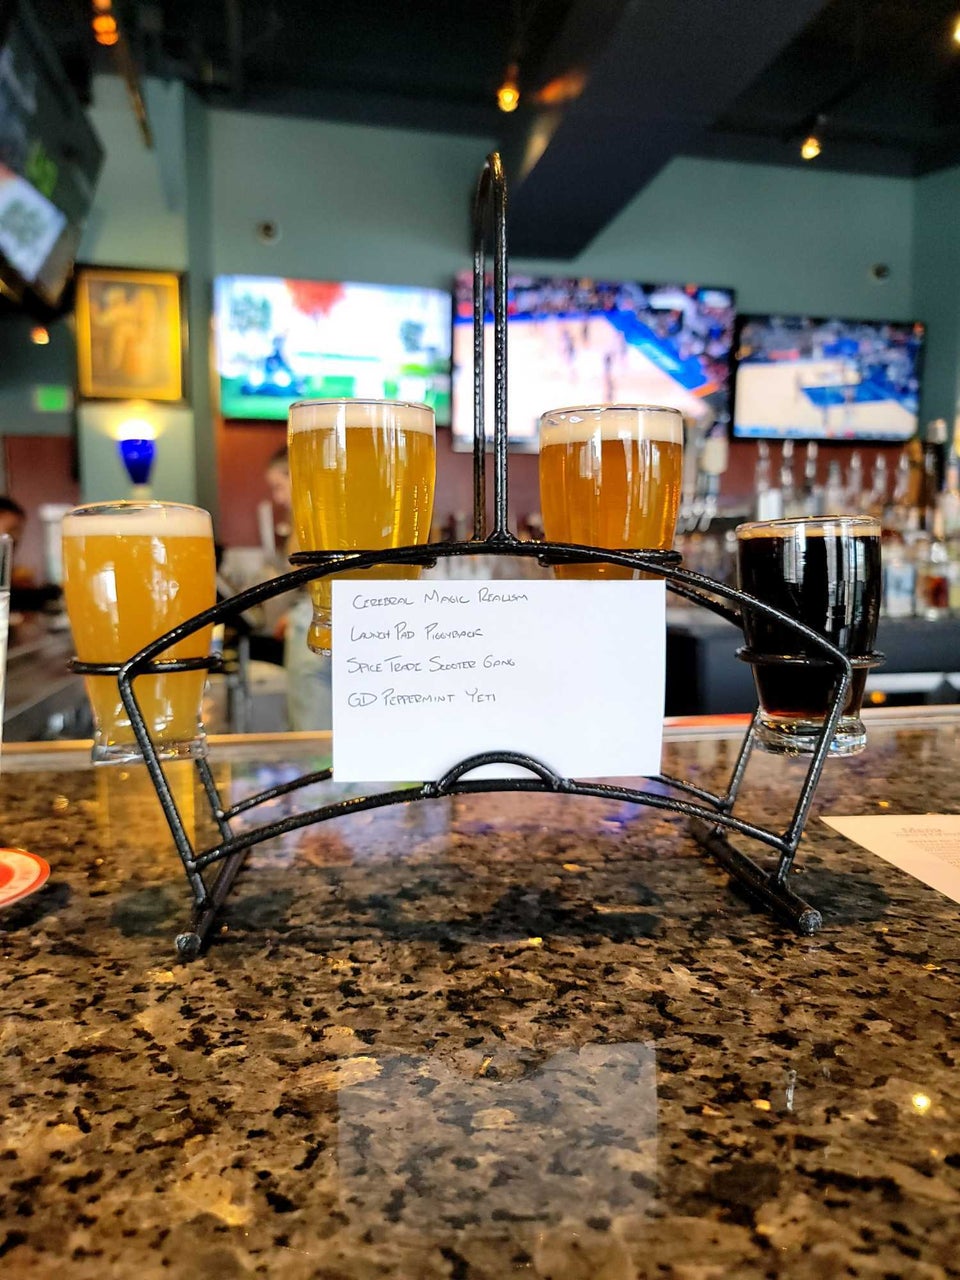 Cerebral Magic Realism
Launch Pad Piggyback
Spice Trade Scooter Gang
GD Peppermint Yeti
Menu